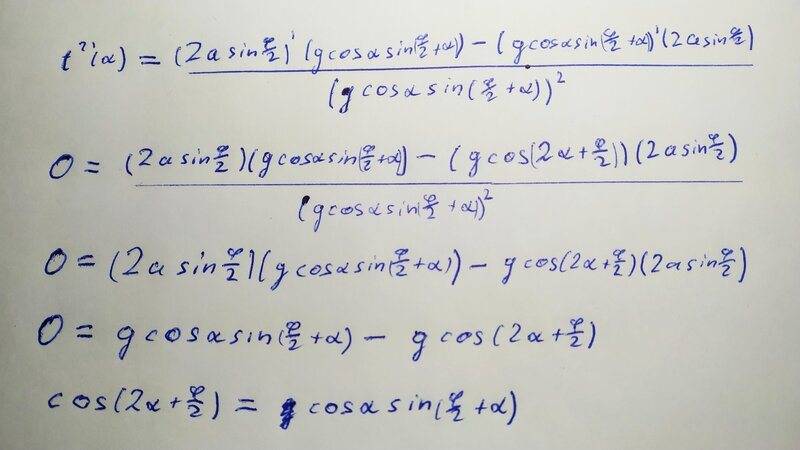 t²'(α) = (2a sin φ/2)' (g cosα sin(φ/2 + α)) − (g cosα sin(φ/2 + α))' (2a sin φ/2) / (g cosα sin(φ/2 + α))²
0 = (2a sin φ/2)(g cosα sin(φ/2 + α)) − (g cos(2α + φ/2))(2a sin φ/2) / (g cosα sin(φ/2 + α))²
0 = (2a sin φ/2)(g cosα sin(φ/2 + α)) − g cos(2α + φ/2)(2a sin φ/2)
0 = g cosα sin(φ/2 + α) − g cos(2α + φ/2)
cos(2α + φ/2) = cosα sin(φ/2 + α)